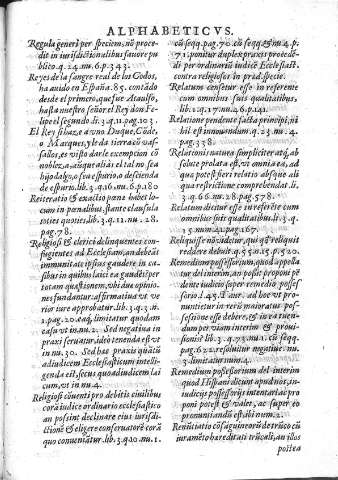 ALPHABETICVS.
Regula generi per speciem, nō proce
dit in iurisdictionalibus fauore pu
blico. q. 24. nu. 6. p. 343.
Reyes de la sangre real de los Godos,
ha auido en España. 85. contādo
desde el primero, que fue Ataulfo,
hasta nuestro señor el Rey don Fe-
lipe el segundo. li. 3. q. 11. pag. 103.
El Rey si haze a vno Duque, Cōde,
o Marques, y le da tierra cō vas-
sallos, es visto darle exempcion cō
nobleza, aūque este tal no sea
hijodalgo, o sea espurio, o descienda
de espurio. lib. 3. q. 16. nu. 6. p. 180
Reiteratio & exactio pœnæ habet lo-
cum in pœnalibus, stante clausula
toties quoties. lib. 3. q. 11. nu. 28.
pag. 78.
Religiosi & clerici delinquentes con-
fugientes ad Ecclesiam, an debeāt
immunitate ipsius gaudere in ca-
sibus in quibus laici ea gaudēt: per
totam quæstionem, vbi duæ opinio-
nes fundantur. affirmatiua vt ve-
rior iure approbatur. lib. 3. q. 3. in
1. pag. 20. eaq; limitatur quodam
casu vt in nu. 2. Sed negatiua in
praxi seruatur, ideo tenenda est vt
in nu. 30. Sed hæc praxis quātū
adiudicem Ecclesiasticum intelli-
genda est, secus quo ad iudicem lai
cum, vt in nu. 4.
Religiosi cōuenti pro debitis ciuilibus
corā iudice ordinario ecclesiastico
an possint declinare eius iurisdi-
ctionē & eligere conseruatorē corā
quo conueniātur. lib. 3. q. 20. nu. 1.
cū seqq. pag. 70. cū seqq. & nu. 4. p.
71. ponitur duplex praxis procedē-
di per ordinariū iudicē Ecclesiast.
contra religiosos in præd. specie.
Relatum censetur esse in referente
cum omnibus suis qualitatibus,
lib. 2. q. 17. nu. 46. p. 141.
Relatione pendente facta principi, ni
hil est innouandum. q. 23. nu. 4.
pag. 338.
Relationis natura simpliciter atq; ab
solute prolata est, vt omnia ea, ad
quæ potest fieri relatio absque ali
qua restrictione comprehendat. li.
3. q. 26. nu. 9. pag. 578.
Relatum dicitur esse in referēte cum
omnibus suis qualitatibus. li. 3. q.
15. num. 41. pag. 167.
Reliquisse nō videtur, qui quē reliquit
reddere debet. q. 55. n. 15. p. 520.
Remediū possessorium, quod appella
tur del interim, an possit proponi pē
dente iudicio super remedio posses-
sorio l. 45. Tauri. ad hoc vt pro-
nuntietur in reriū maioratus pos-
sessione esse debere, & in ea tenen-
dum per viam interim & prouisi-
onis? lib. 3. q. 73. nu. 1. cum seqq.
pag. 622. resoluitur negatiuè. nu.
4.
Remedium possessorium del interim
quod Hispani dicunt apud nos, in
iudicijs possessorijs intentari ac pro
poni potest & valet, ac super eo
pronuntiandū est ibi num. 2.
Renūtiatio cōsanguineorū de trūco cū
iuramēto hæreditati trūcali, an illos
postea